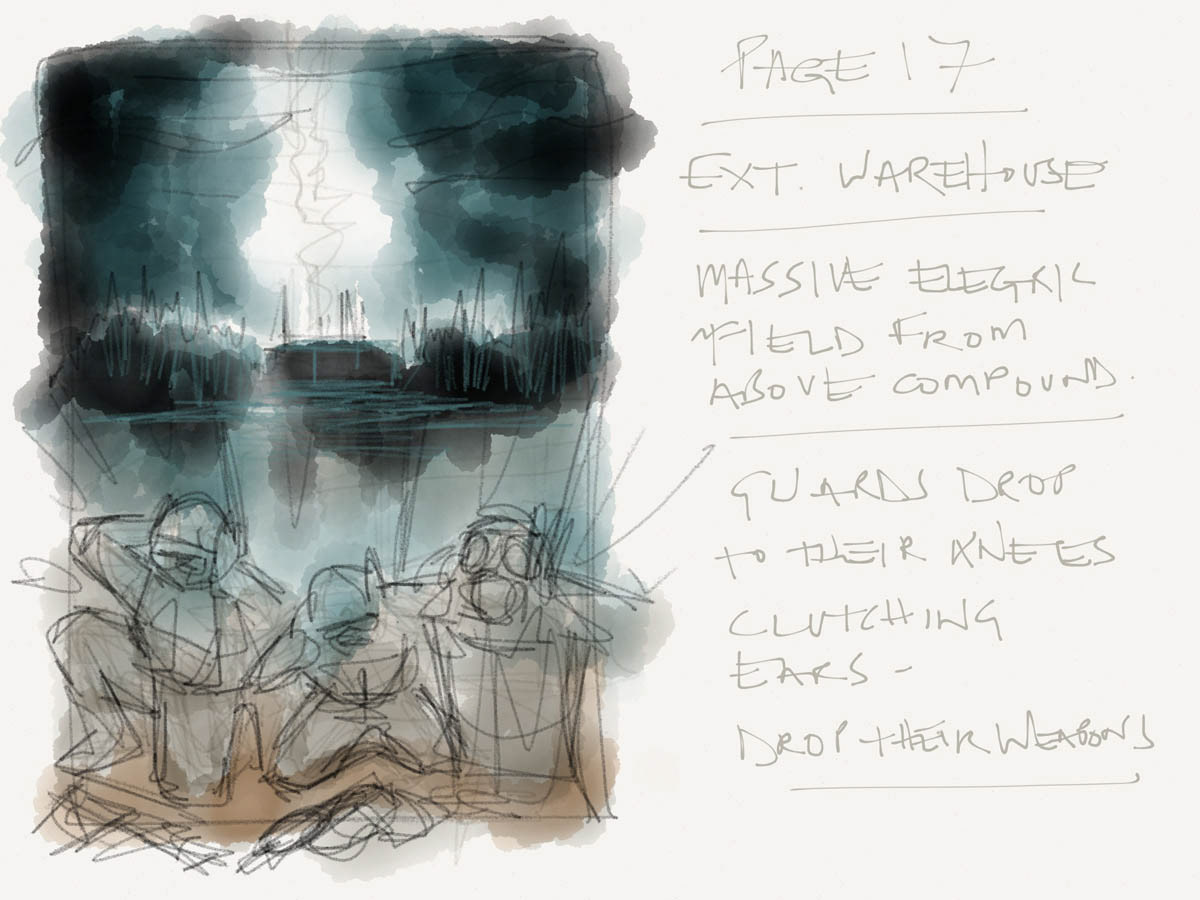 PAGE 17
EXT. WAREHOUSE
MASSIVE ELECTRIC
FIELD FROM
ABOVE COMPOUND.
GUARDS DROP
TO THEIR KNEES
CLUTCHING
EARS -
DROP THEIR WEAPONS